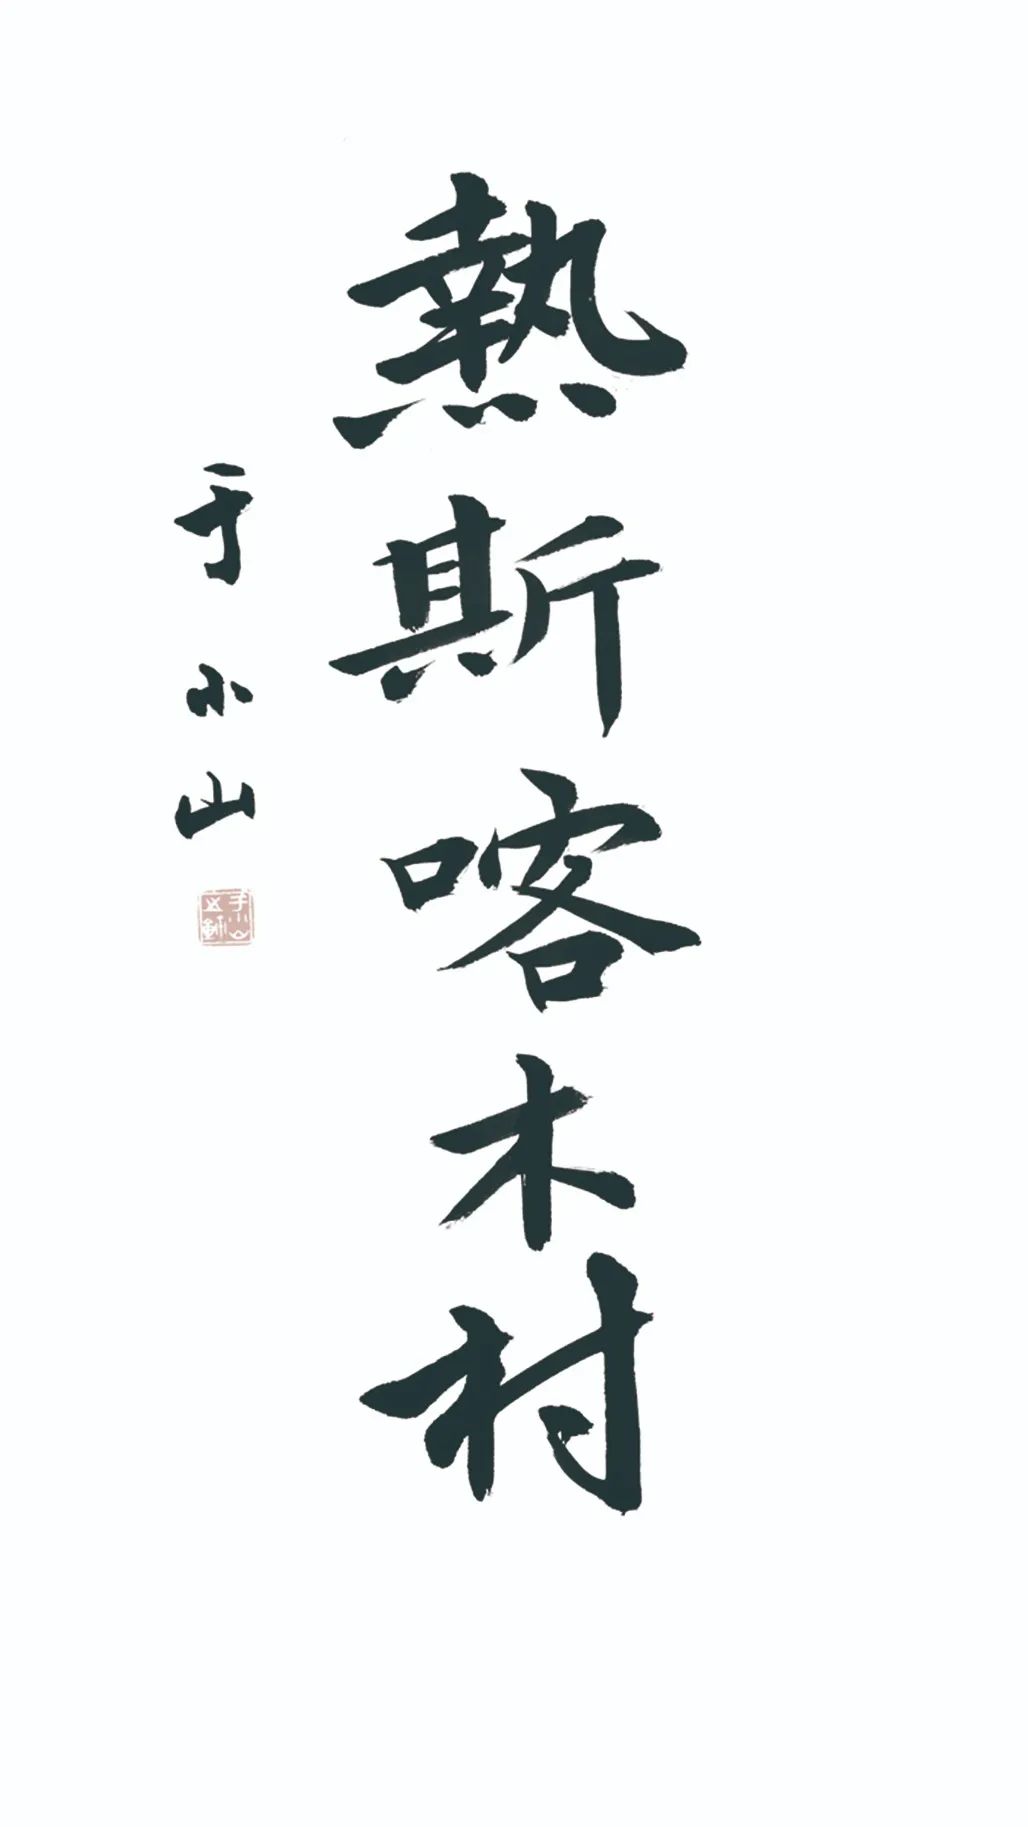 熱斯喀木村
于小山